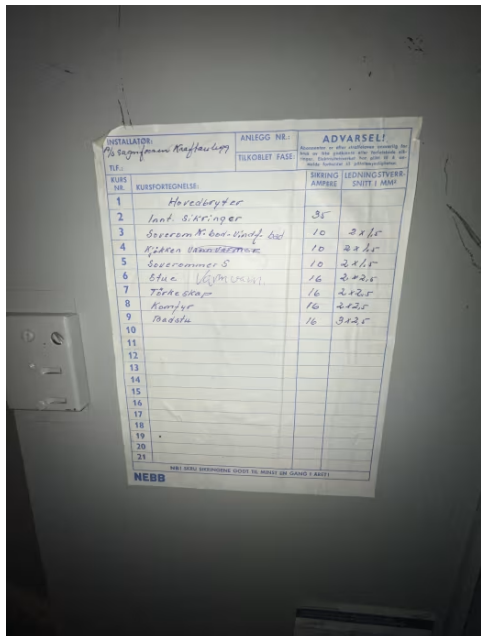 INSTALLATØR:
P/b Sagnfossen Kraftanlegg
TLF.:
ANLEGG NR.:
TILKOBLET FASE:
ADVARSEL!
KURS NR. KURSFORTEGNELSE: SIKRING AMPERE LEDNINGSTVERR-SNITT I MM²
1 Hovedbryter
2 Innt. Sikringer 35
3 Soverom N. bod-vindf. bad 10 2x1,5
4 Kjøkken 10 2x1,5
5 Soverommer S 10 2x1,5
6 Stue Varmvassb. 16 2x2,5
7 Tørkeskap 16 2x2,5
8 Komfyr 16 2x2,5
9 Badstu 16 3x2,5
10
11
12
13
14
15
16
17
18
19
20
21
NB! SKRU SIKRINGENE GODT TIL MINST EN GANG I ÅRET!
NEBB